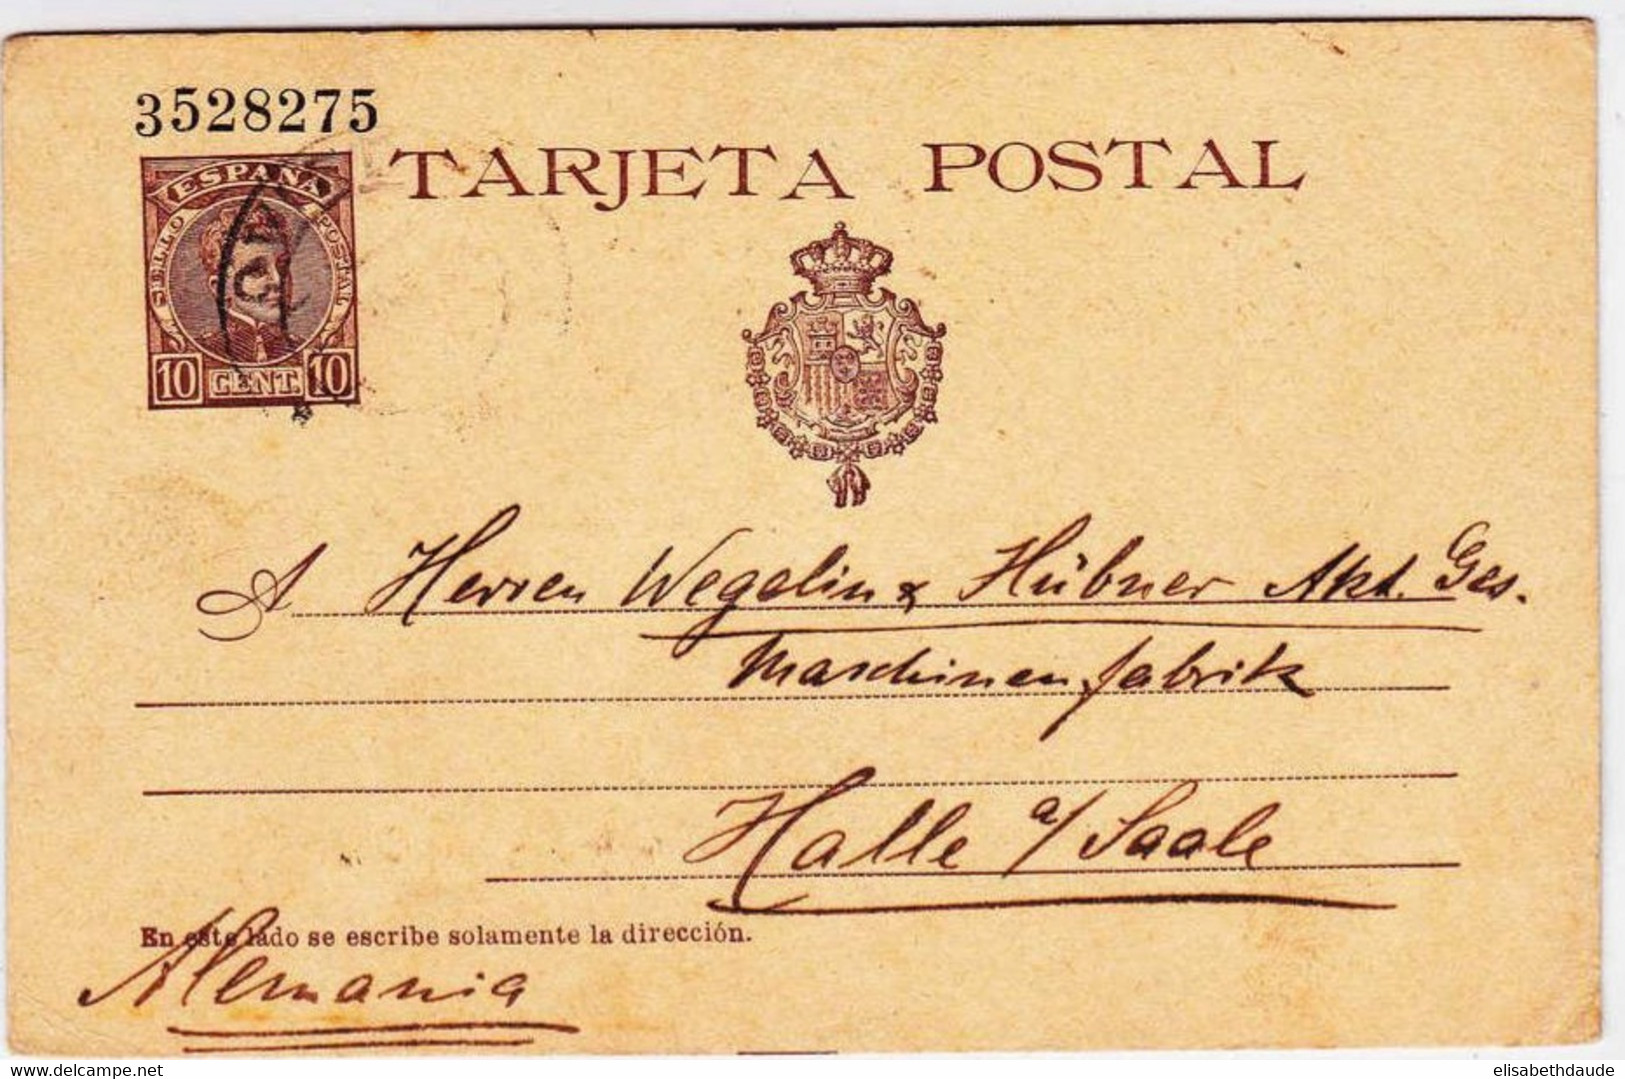 3528275
TARJETA POSTAL
ESPAÑA
SELLO POSTAL
10 CENT. 10
A Herren Wegelin & Hübner Akt. Ges.
Maschinenfabrik
Halle a/ Saale
En este lado se escribe solamente la dirección.
Alemania
delcampe.net
elisabethdaude